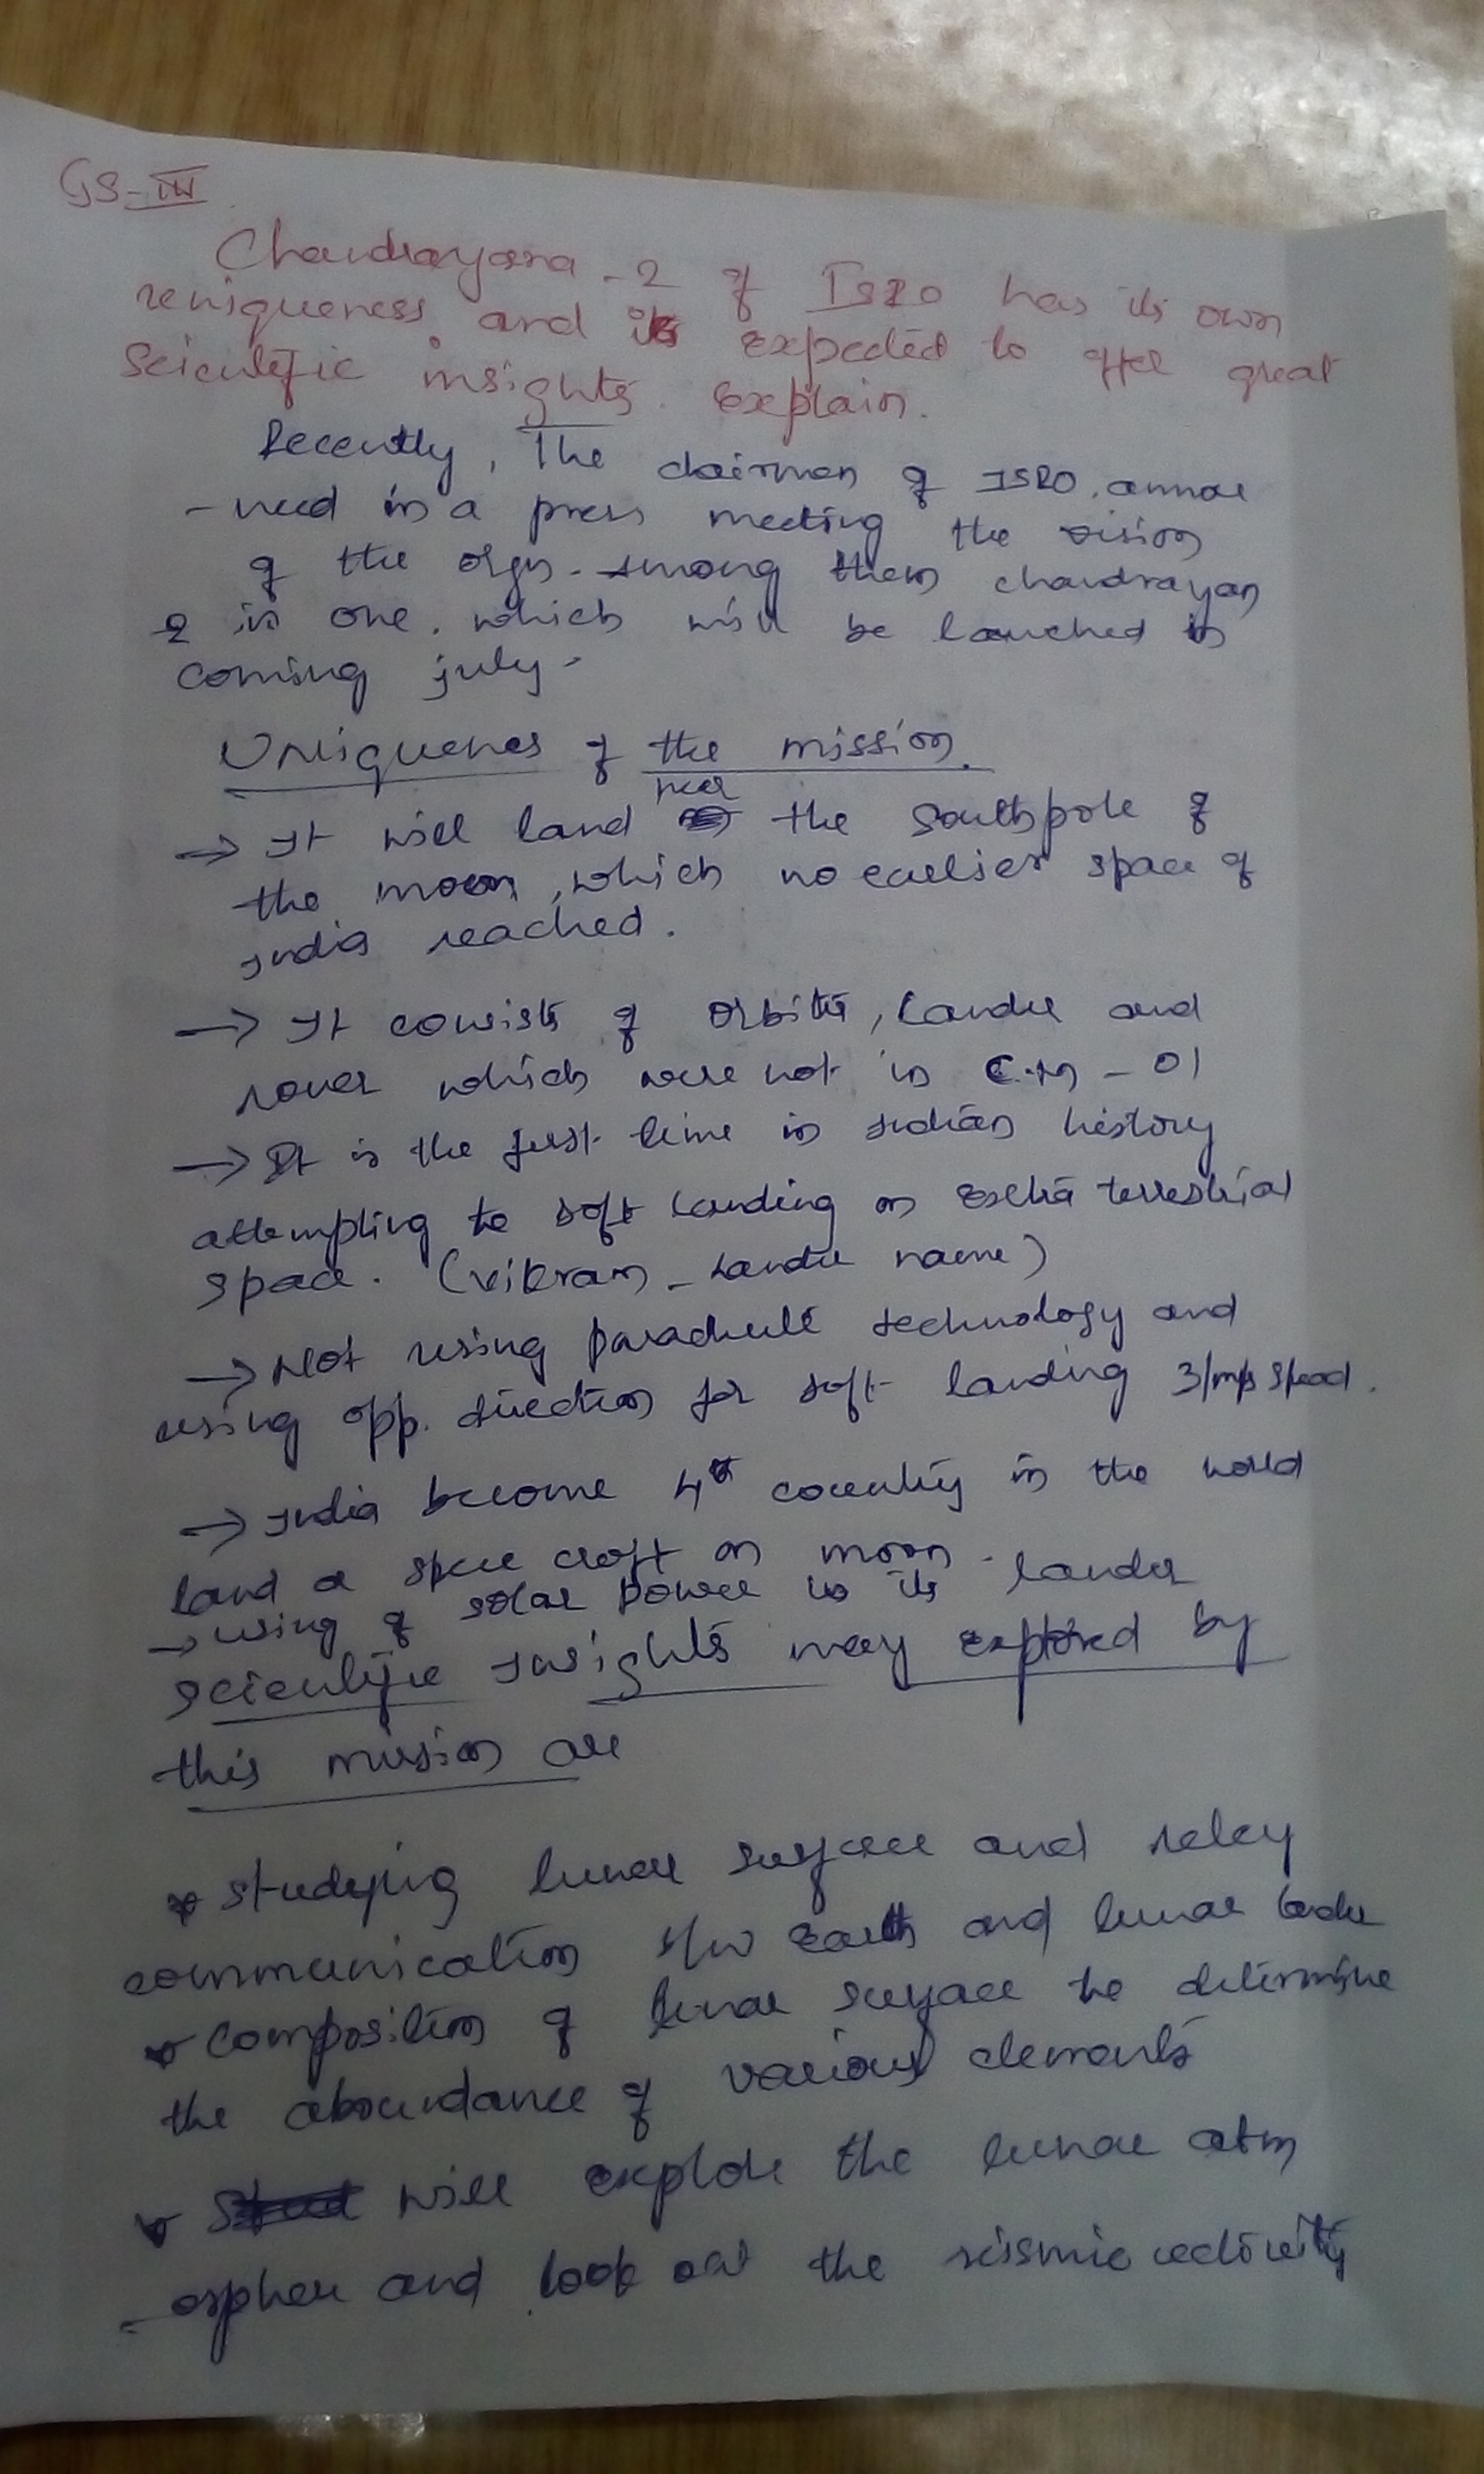 GS-III
Chandrayana-2 of ISRO has its own
uniqueness and is expected to offer great
Scientific insights. Explain.
Recently, The chairman of ISRO, annou
-nced in a press meeting the vision
of the orgn. Among them chandrayan
2 is one. which will be launched in
coming july.
Uniquenes of the mission.
near
→ It will land the Southpole of
the moon, which no earlier space of
India reached.
→ It consists of Orbiter, Lander and
rover which were not in C.N-01
→ It is the first time in Indian history
attempting to soft landing on Extra terrestrial
space. (Vikram - Lander name)
→ Not using parachute technology and
using opp. direction for soft landing 3/mps speed.
→ India become 4th country in the world
land a space craft on moon.
→ Using of solar power in its lander
Scientific Insights may explored by
this mission are
* Studying lunar surface and relay
communication b/w Earth and lunar lander
* Composition of lunar surface to determine
the aboundance of various elements
* will explore the lunar atm
-osphere and look out the seismic activity